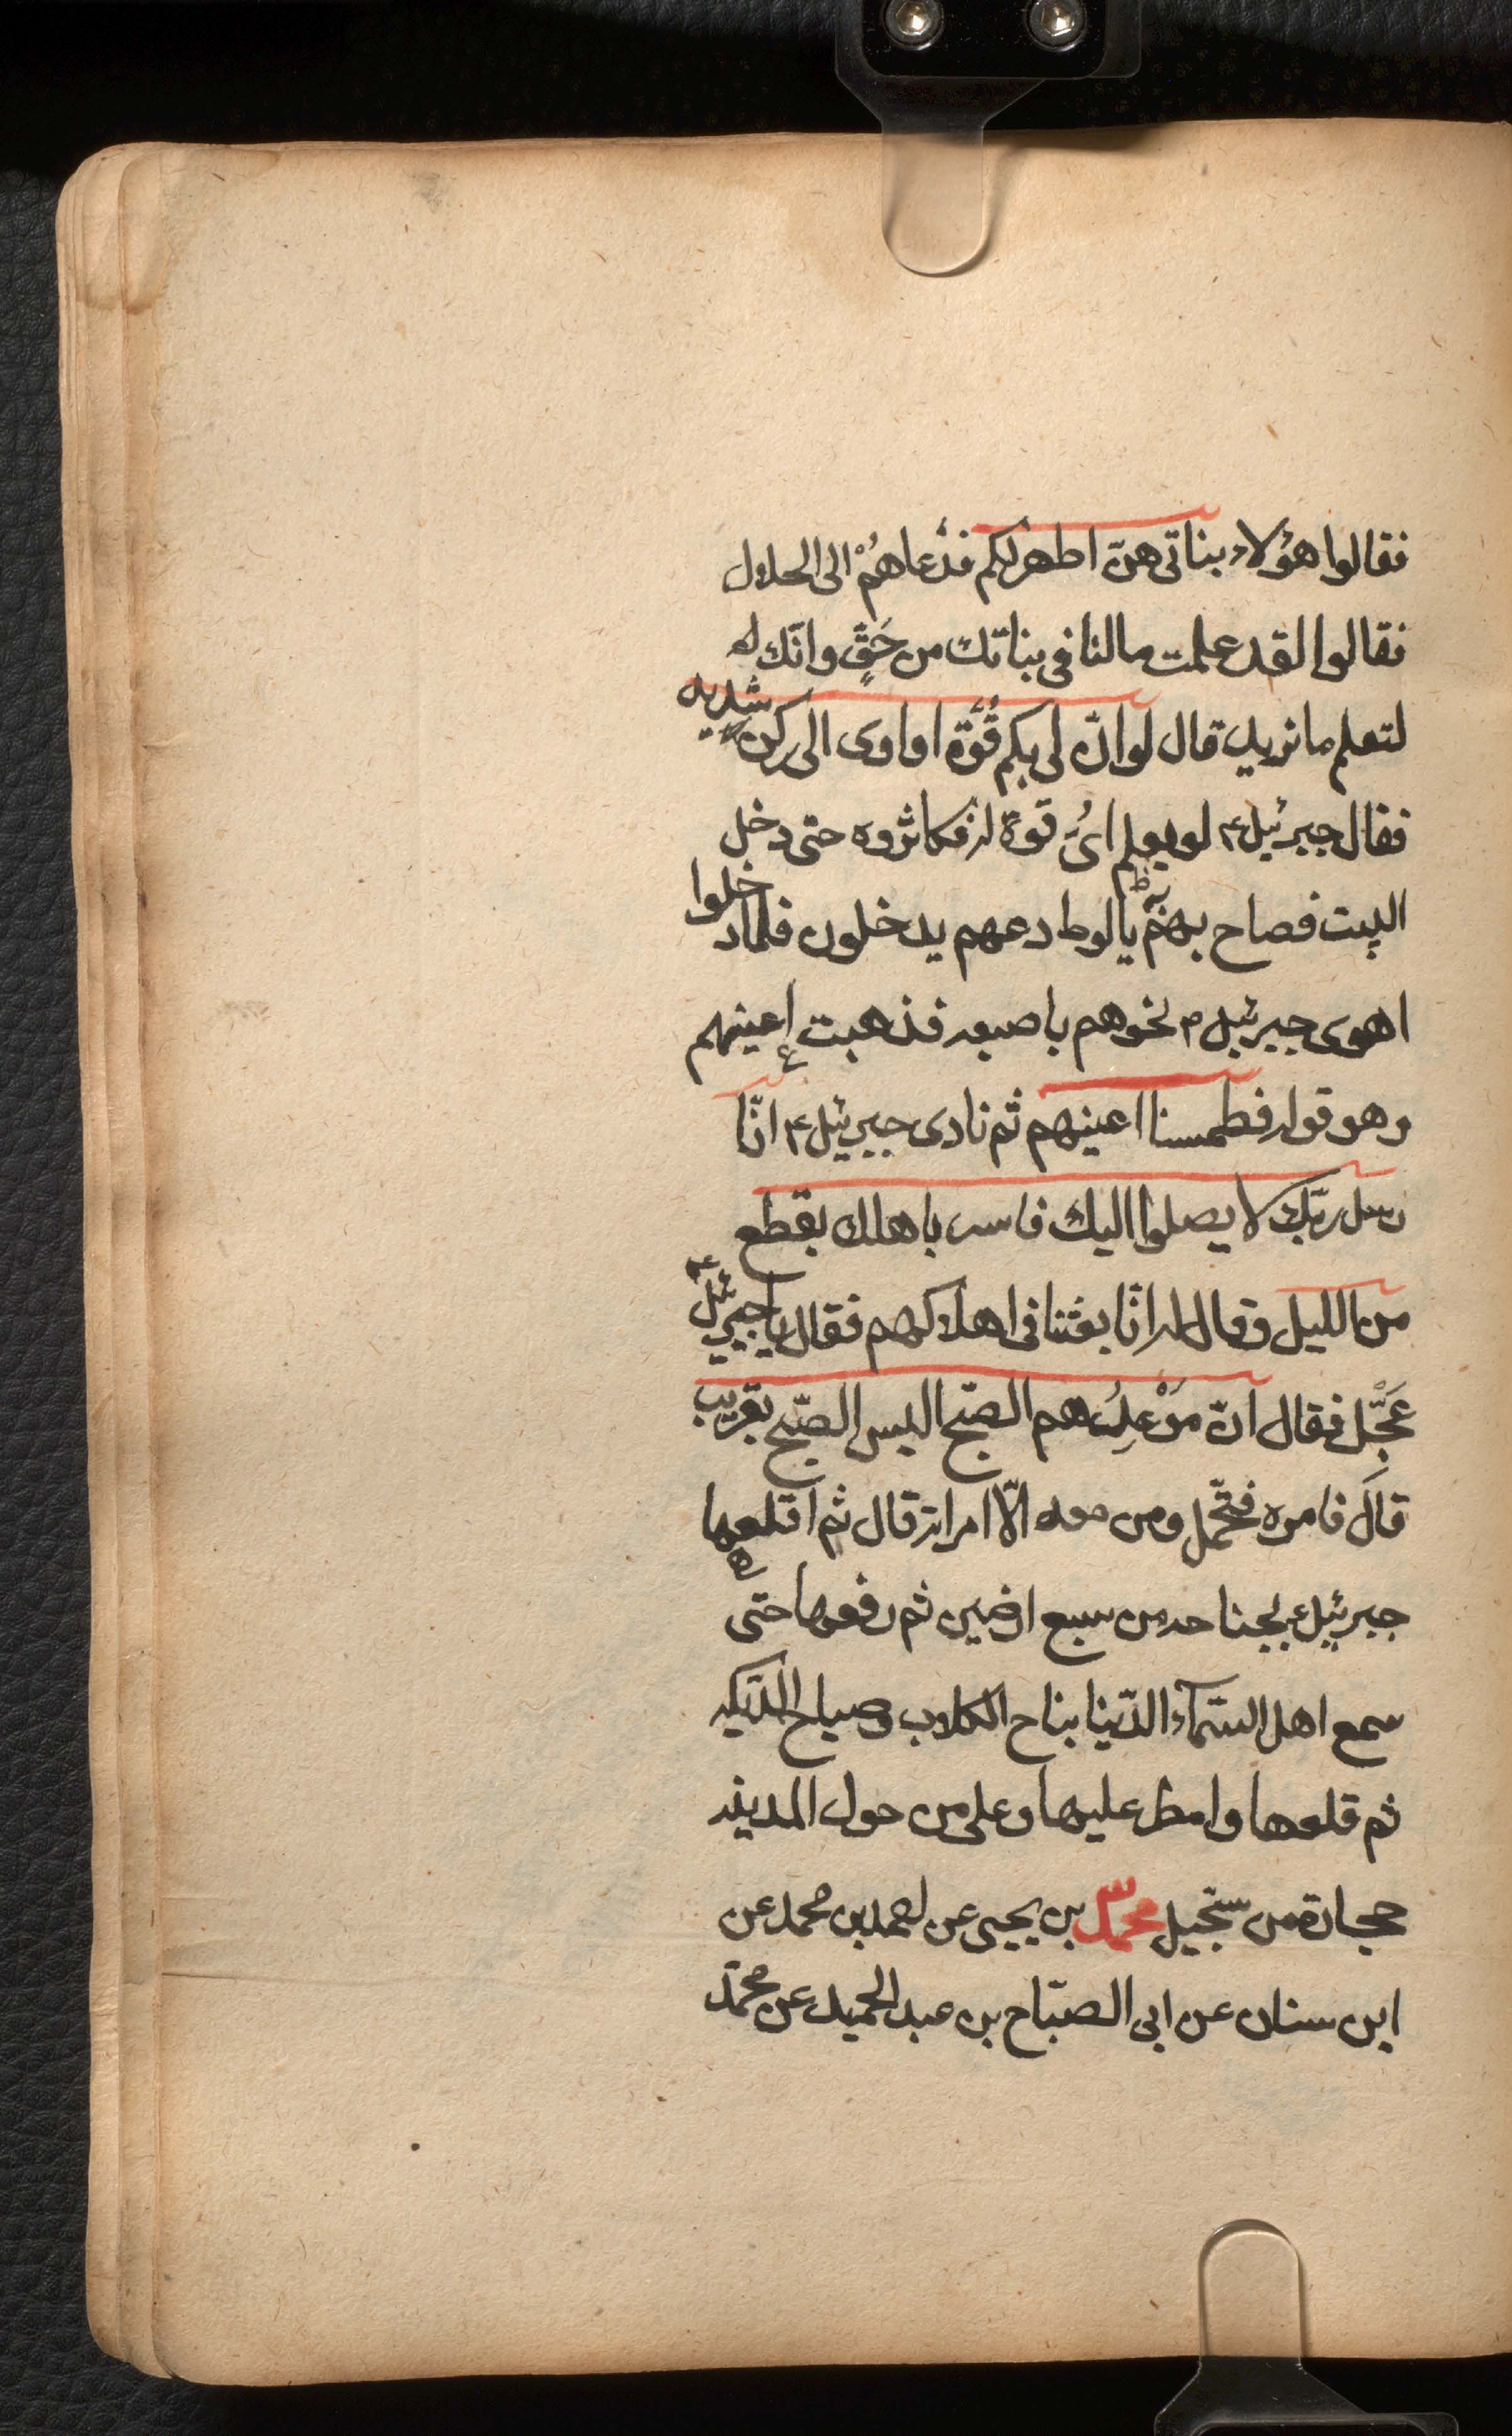 فقالوا هؤلاء بناتى هنّ اطهر لكم فدعاهُمْ الى الحلال
فقالوا لقد علمت مالنا فى بناتك من حَقٍّ وانّك
لتعلم ما نريد قال لو انّ لى بكم قُوَّة او اوى الى ركن شديد
فقال جبرئيل ع لو يعلم اىُّ قوة له فكاثروه حتى دخل
البيت فصاح بهم يا لوط دعهم يدخلون فلما دخلوا
اهوى جبرئيل ع نحوهم باصبعه فذهبت اعينهم
وهو قوله فطمسنا اعينهم ثم نادى جبرئيل ع انّا
رسل ربّك لا يصلوا اليك فاسر باهلك بقطع
من الليل وقال له انّا بعثنا فى اهلاكهم فقال يا جبرئيل
عَجِّل فقال انّ مَوْعِدهم الصّبح اليس الصّبح بقريب
قال فامره فتحمّل ومن معه الّا امراته قال ثم اقتلعها
جبرئيل ع بجناحه من سبع ارضين ثم رفعها حتى
سمع اهل السّماء الدّنيا نباح الكلاب وصياح الدّيكه
ثم قلعها وامطر عليها وعلى من حول المدينه
حجارة من سجّيل محمّد بن يحيى عن احمد بن محمد عن
ابن سنان عن ابى الصبّاح بن عبد الحميد عن محمّد